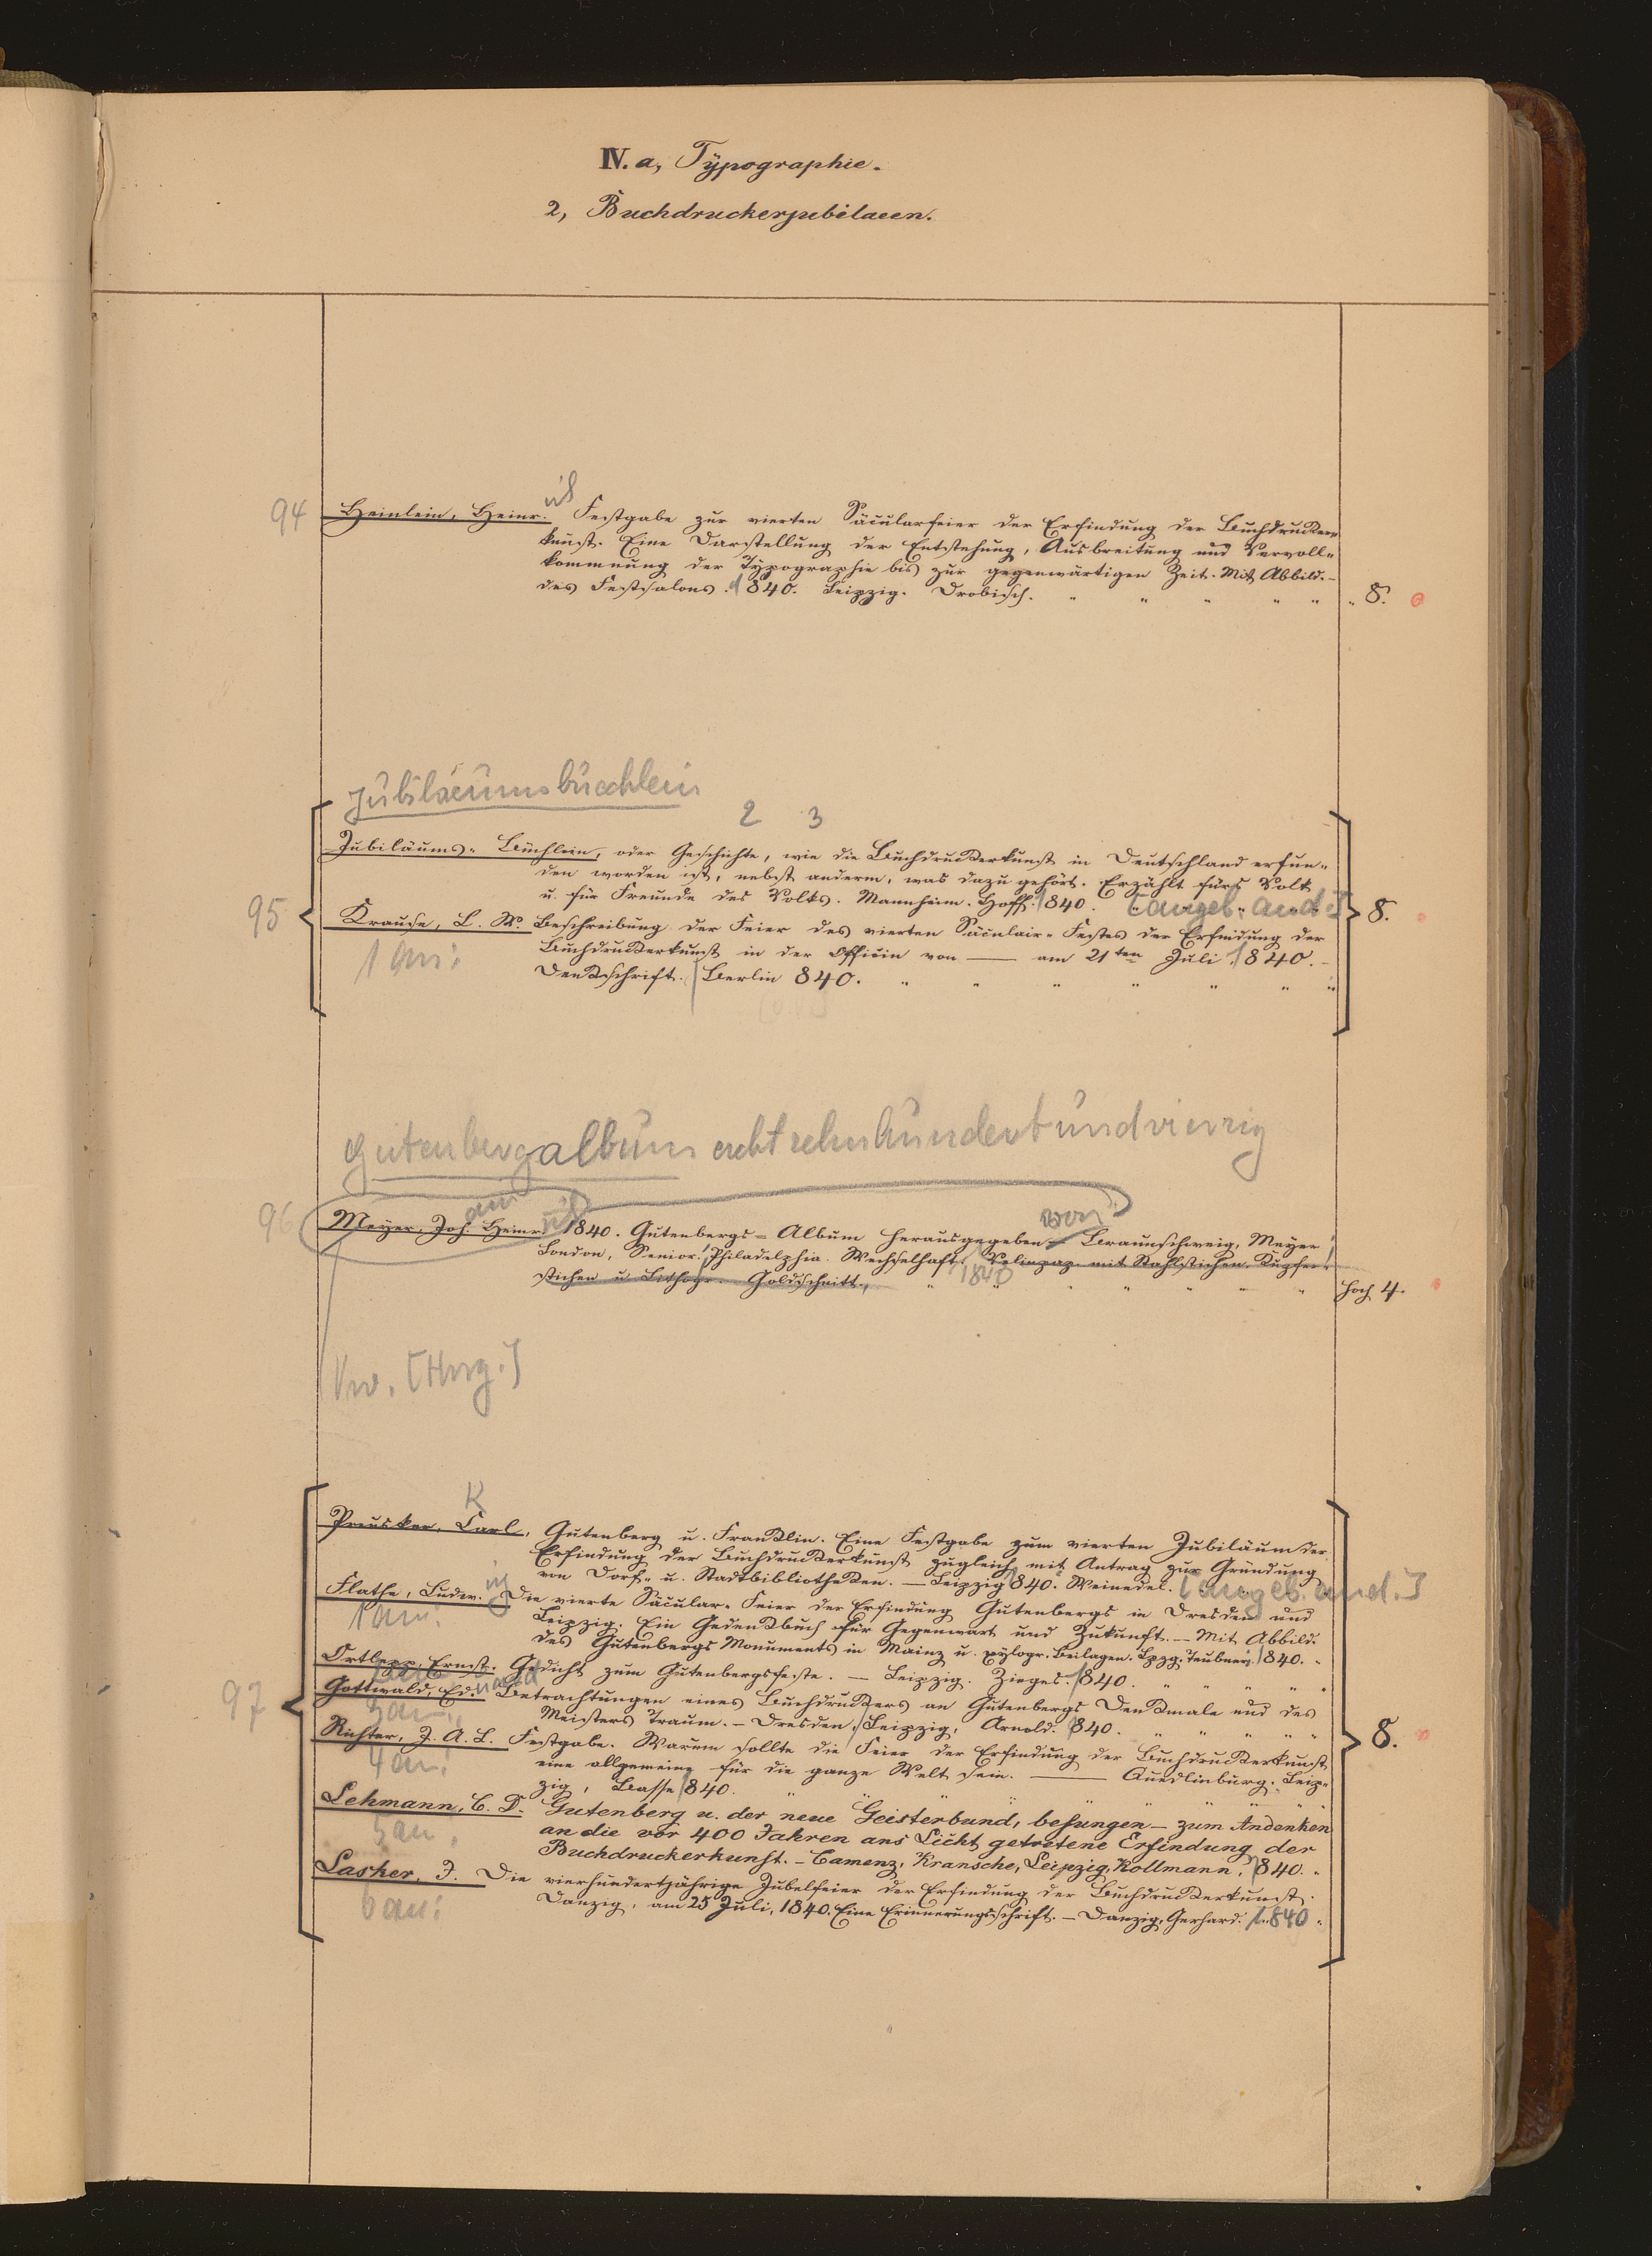 IV. a, Typographie.
2, Buchdruckerjubilaeen.
94
Heinlein, Heinr. Festgabe zur vierten Säcularfeier der Erfindung der Buchdrucker-
kunst. Eine Darstellung der Entstehung, Ausbreitung und Vervoll-
kommnung der Typographie bis zur gegenwärtigen Zeit. Mit Abbild.
des Festsalons. 1840. Leipzig. Drobisch. 8.
Jubiläumsbüchlein
2 3
Jubiläums-Büchlein, oder Geschichte, wie die Buchdruckerkunst in Deutschland erfun-
den worden ist, nebst anderm, was dazu gehört. Erzählt fürs Volk
u. für Freunde des Volks. Mannheim. Hoff. 1840. [angeb. and.]
95 8.
Krause, L. W. Beschreibung der Feier des vierten Säculair-Festes der Erfindung der
1 an:
Buchdruckerkunst in der Officin von — am 21ten Juli 1840. –
Denkschrift. Berlin 840.
Gutenbergalbum achtzehnhundertundvierzig
96
Meyer, Joh. Heinr. 1840. Gutenbergs-Album herausgegeben von Braunschweig, Meyer
London, Senior. Philadelphia. Wechselhaft. Velinpap. mit Stahlstichen. Kupfer-
stichen u. Lithogr. Goldschnitt. 1840 hoch 4.
Vw. [Hrsg.]
K
Preusker, Carl, Gutenberg u. Franklin. Eine Festgabe zum vierten Jubiläum der
Erfindung der Buchdruckerkunst zugleich mit Antrag zur Gründung
von Dorf- u. Stadtbibliotheken. — Leipzig 1840. Weinedel. [angeb. and.]
Flathe, Ludw. Die vierte Säcular-Feier der Erfindung Gutenbergs in Dresden und
1 an:
Leipzig. Ein Gedenkbuch für Gegenwart und Zukunft. — Mit Abbild.
des Gutenbergs Monuments in Mainz u. xylogr. Beilagen. Lpzg. Teubner. 1840.
Ortlepp, Ernst. Gedicht zum Gutenbergsfeste. — Leipzig. Zieges. 1840.
97
Gottwald, Ed. Betrachtungen eines Buchdruckers an Gutenbergs Denkmale und des
3 an:
Meisters Traum. – Dresden, Leipzig, Arnold. 840.
8.
Richter, J. A. L. Festgabe. Warum sollte die Feier der Erfindung der Buchdruckerkunst
4 an:
eine allgemeine für die ganze Welt sein. — Quedlinburg. Leip-
zig, Basse 1840.
Lehmann, C. D. Gutenberg u. der neue Geisterbund, besungen – zum Andenken
5 an:
an die vor 400 Jahren ans Licht getretene Erfindung der
Buchdruckerkunst. – Camenz, Kransche, Leipzig, Kollmann. 840.
Lasker, J. Die vierhundertjährige Jubelfeier der Erfindung der Buchdruckerkunst.
6 an:
Danzig, am 25 Juli, 1840. Eine Erinnerungsschrift. – Danzig, Gerhard. 1840